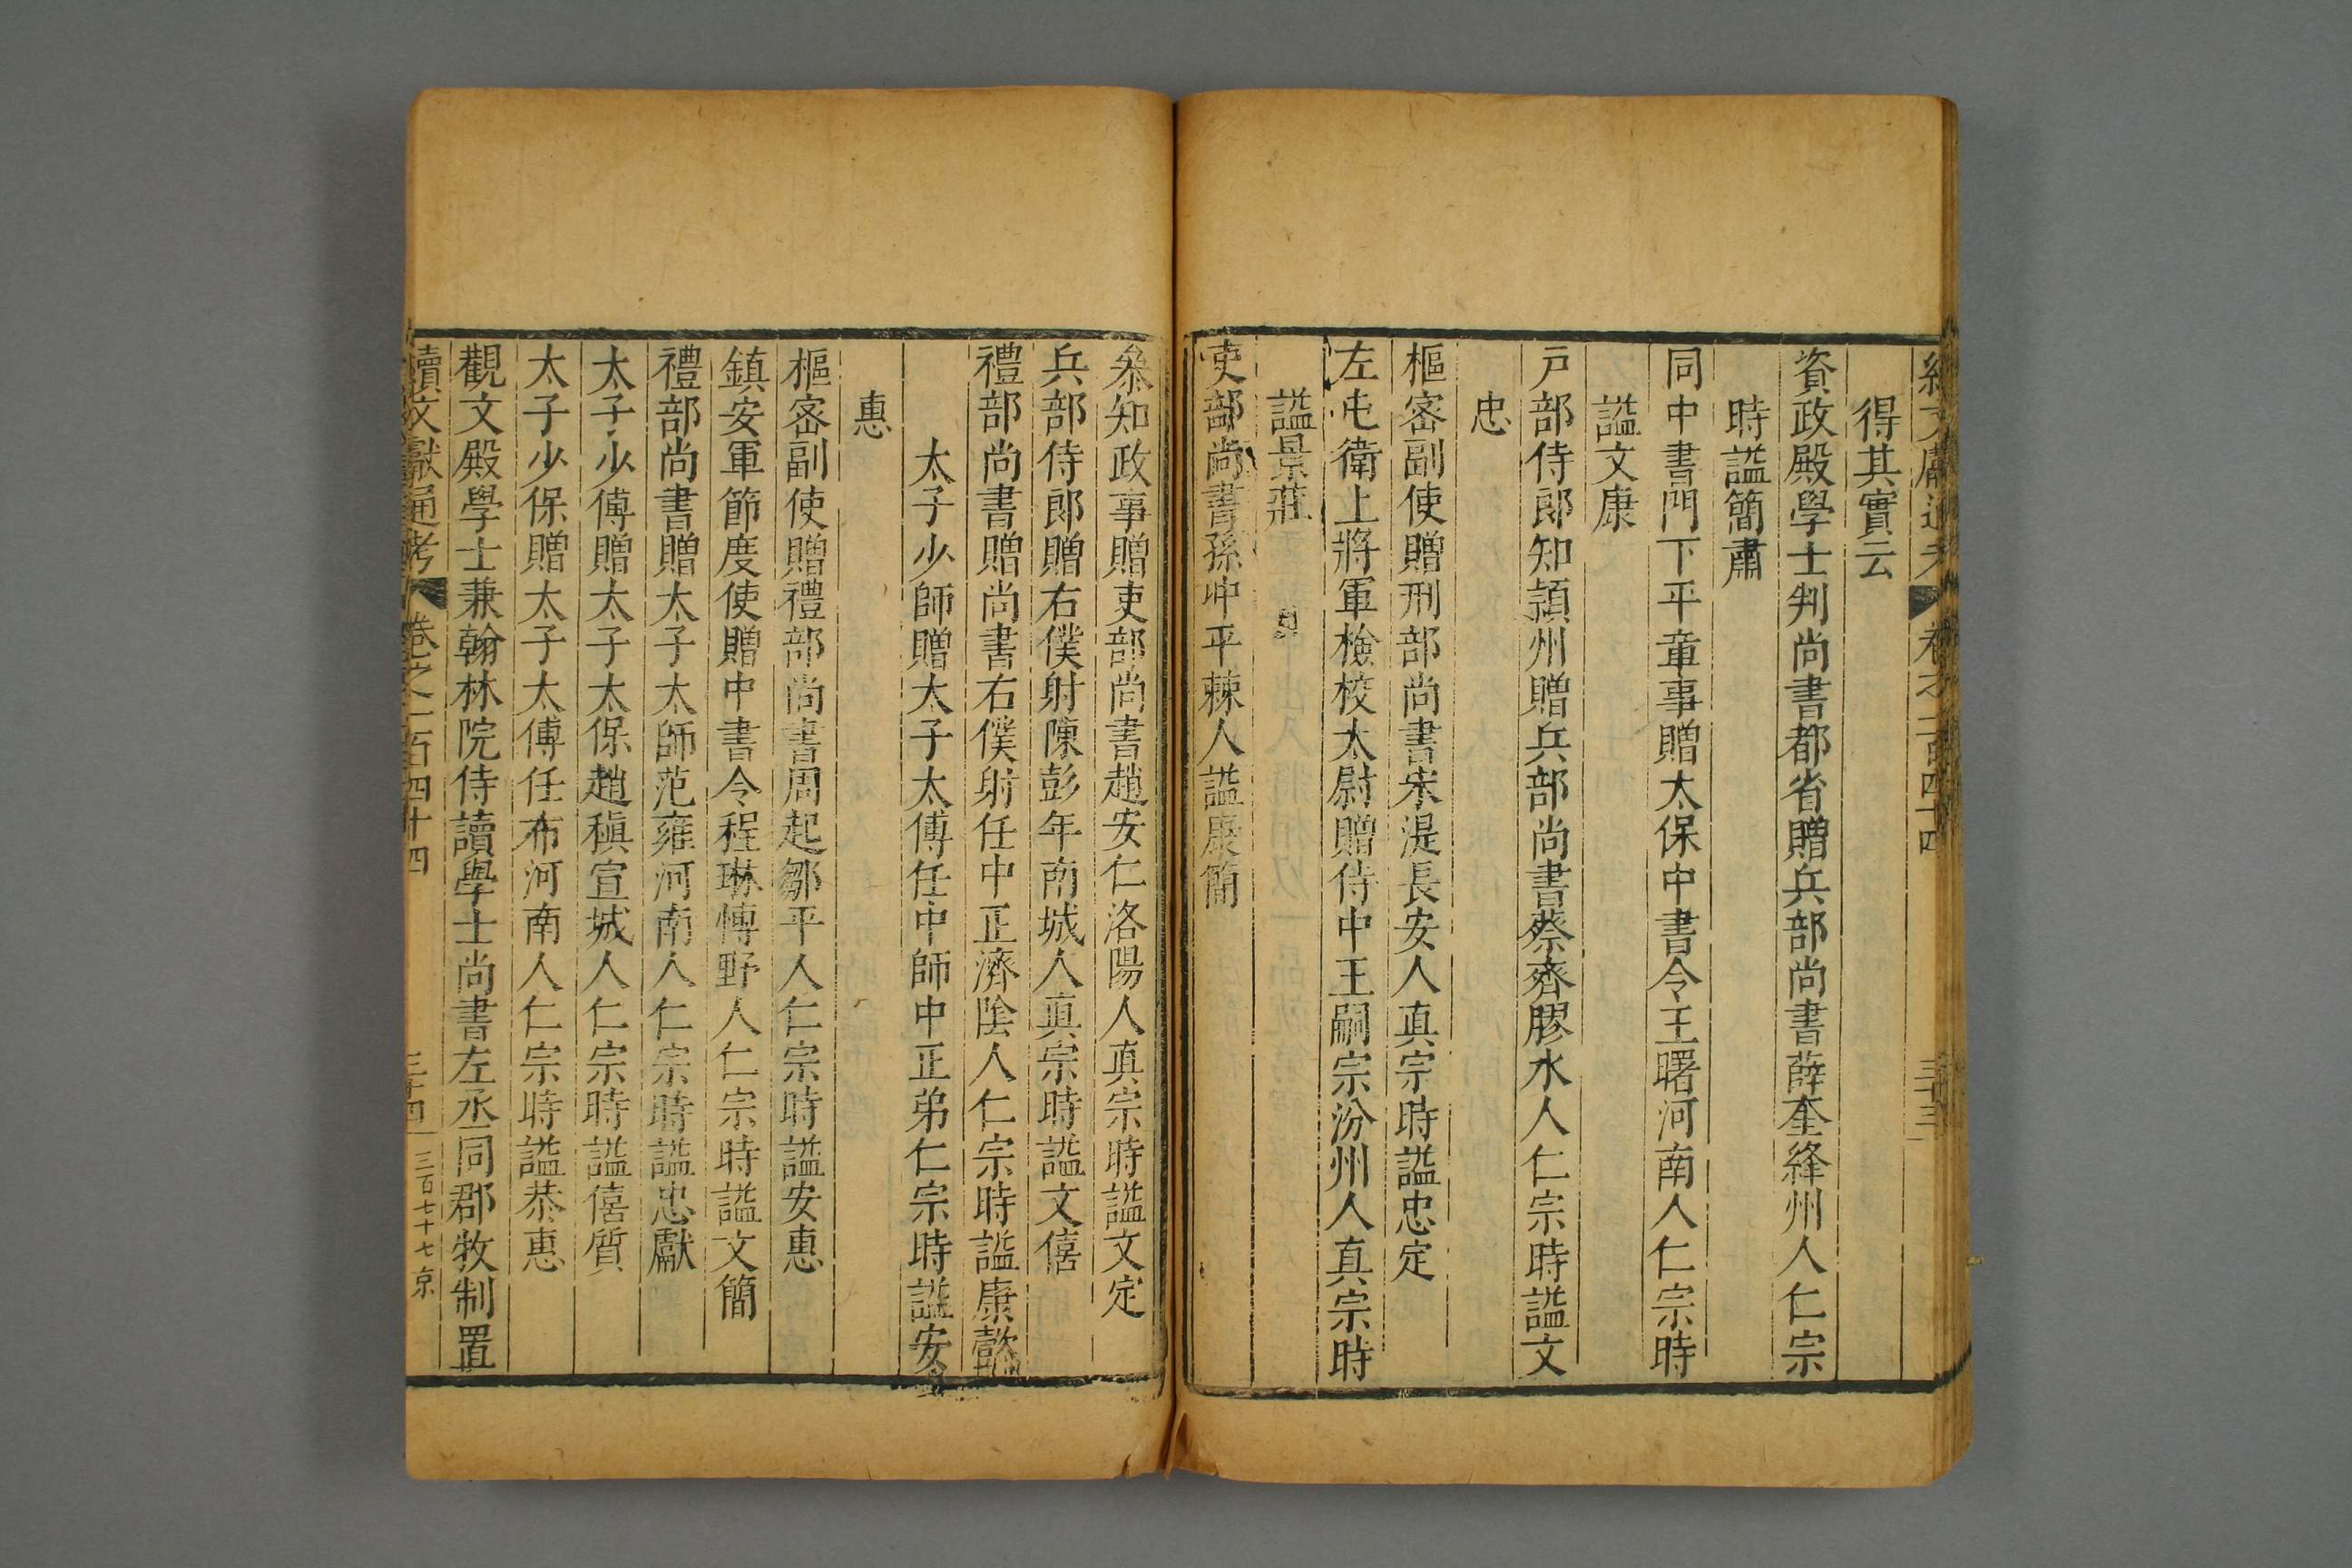 得其實云
資政殿學士判尚書都省贈兵部尚書薛奎絳州人仁宗
時謚簡肅
同中書門下平章事贈太保中書令王曙河南人仁宗時
謚文康
戸部侍郎知頴州贈兵部尚書蔡齊膠水人仁宗時謚文
忠
樞密副使贈刑部尚書宋湜長安人真宗時謚忠定
左屯衛上將軍檢校太尉贈侍中王嗣宗汾州人真宗時
謚景莊
吏部尚書孫冲平棘人謚康簡
叅知政事贈吏部尚書趙安仁洛陽人真宗時謚文定
兵部侍郎贈右僕射陳彭年南城人真宗時謚文僖
禮部尚書贈尚書右僕射任中正濟陰人仁宗時謚康懿
太子少師贈太子太傅任中師中正弟仁宗時謚安
惠
樞密副使贈禮部尚書周起鄒平人仁宗時謚安惠
鎮安軍節度使贈中書令程琳愽野人仁宗時謚文簡
禮部尚書贈太子太師范雍河南人仁宗時謚忠獻
太子少傅贈太子太保趙稹宣城人仁宗時謚僖質
太子少保贈太子太傅任布河南人仁宗時謚恭惠
觀文殿學士兼翰林院侍讀學士尚書左丞同郡牧制置
續文獻通考 卷之一百四十四 三十四 三百七十七 京